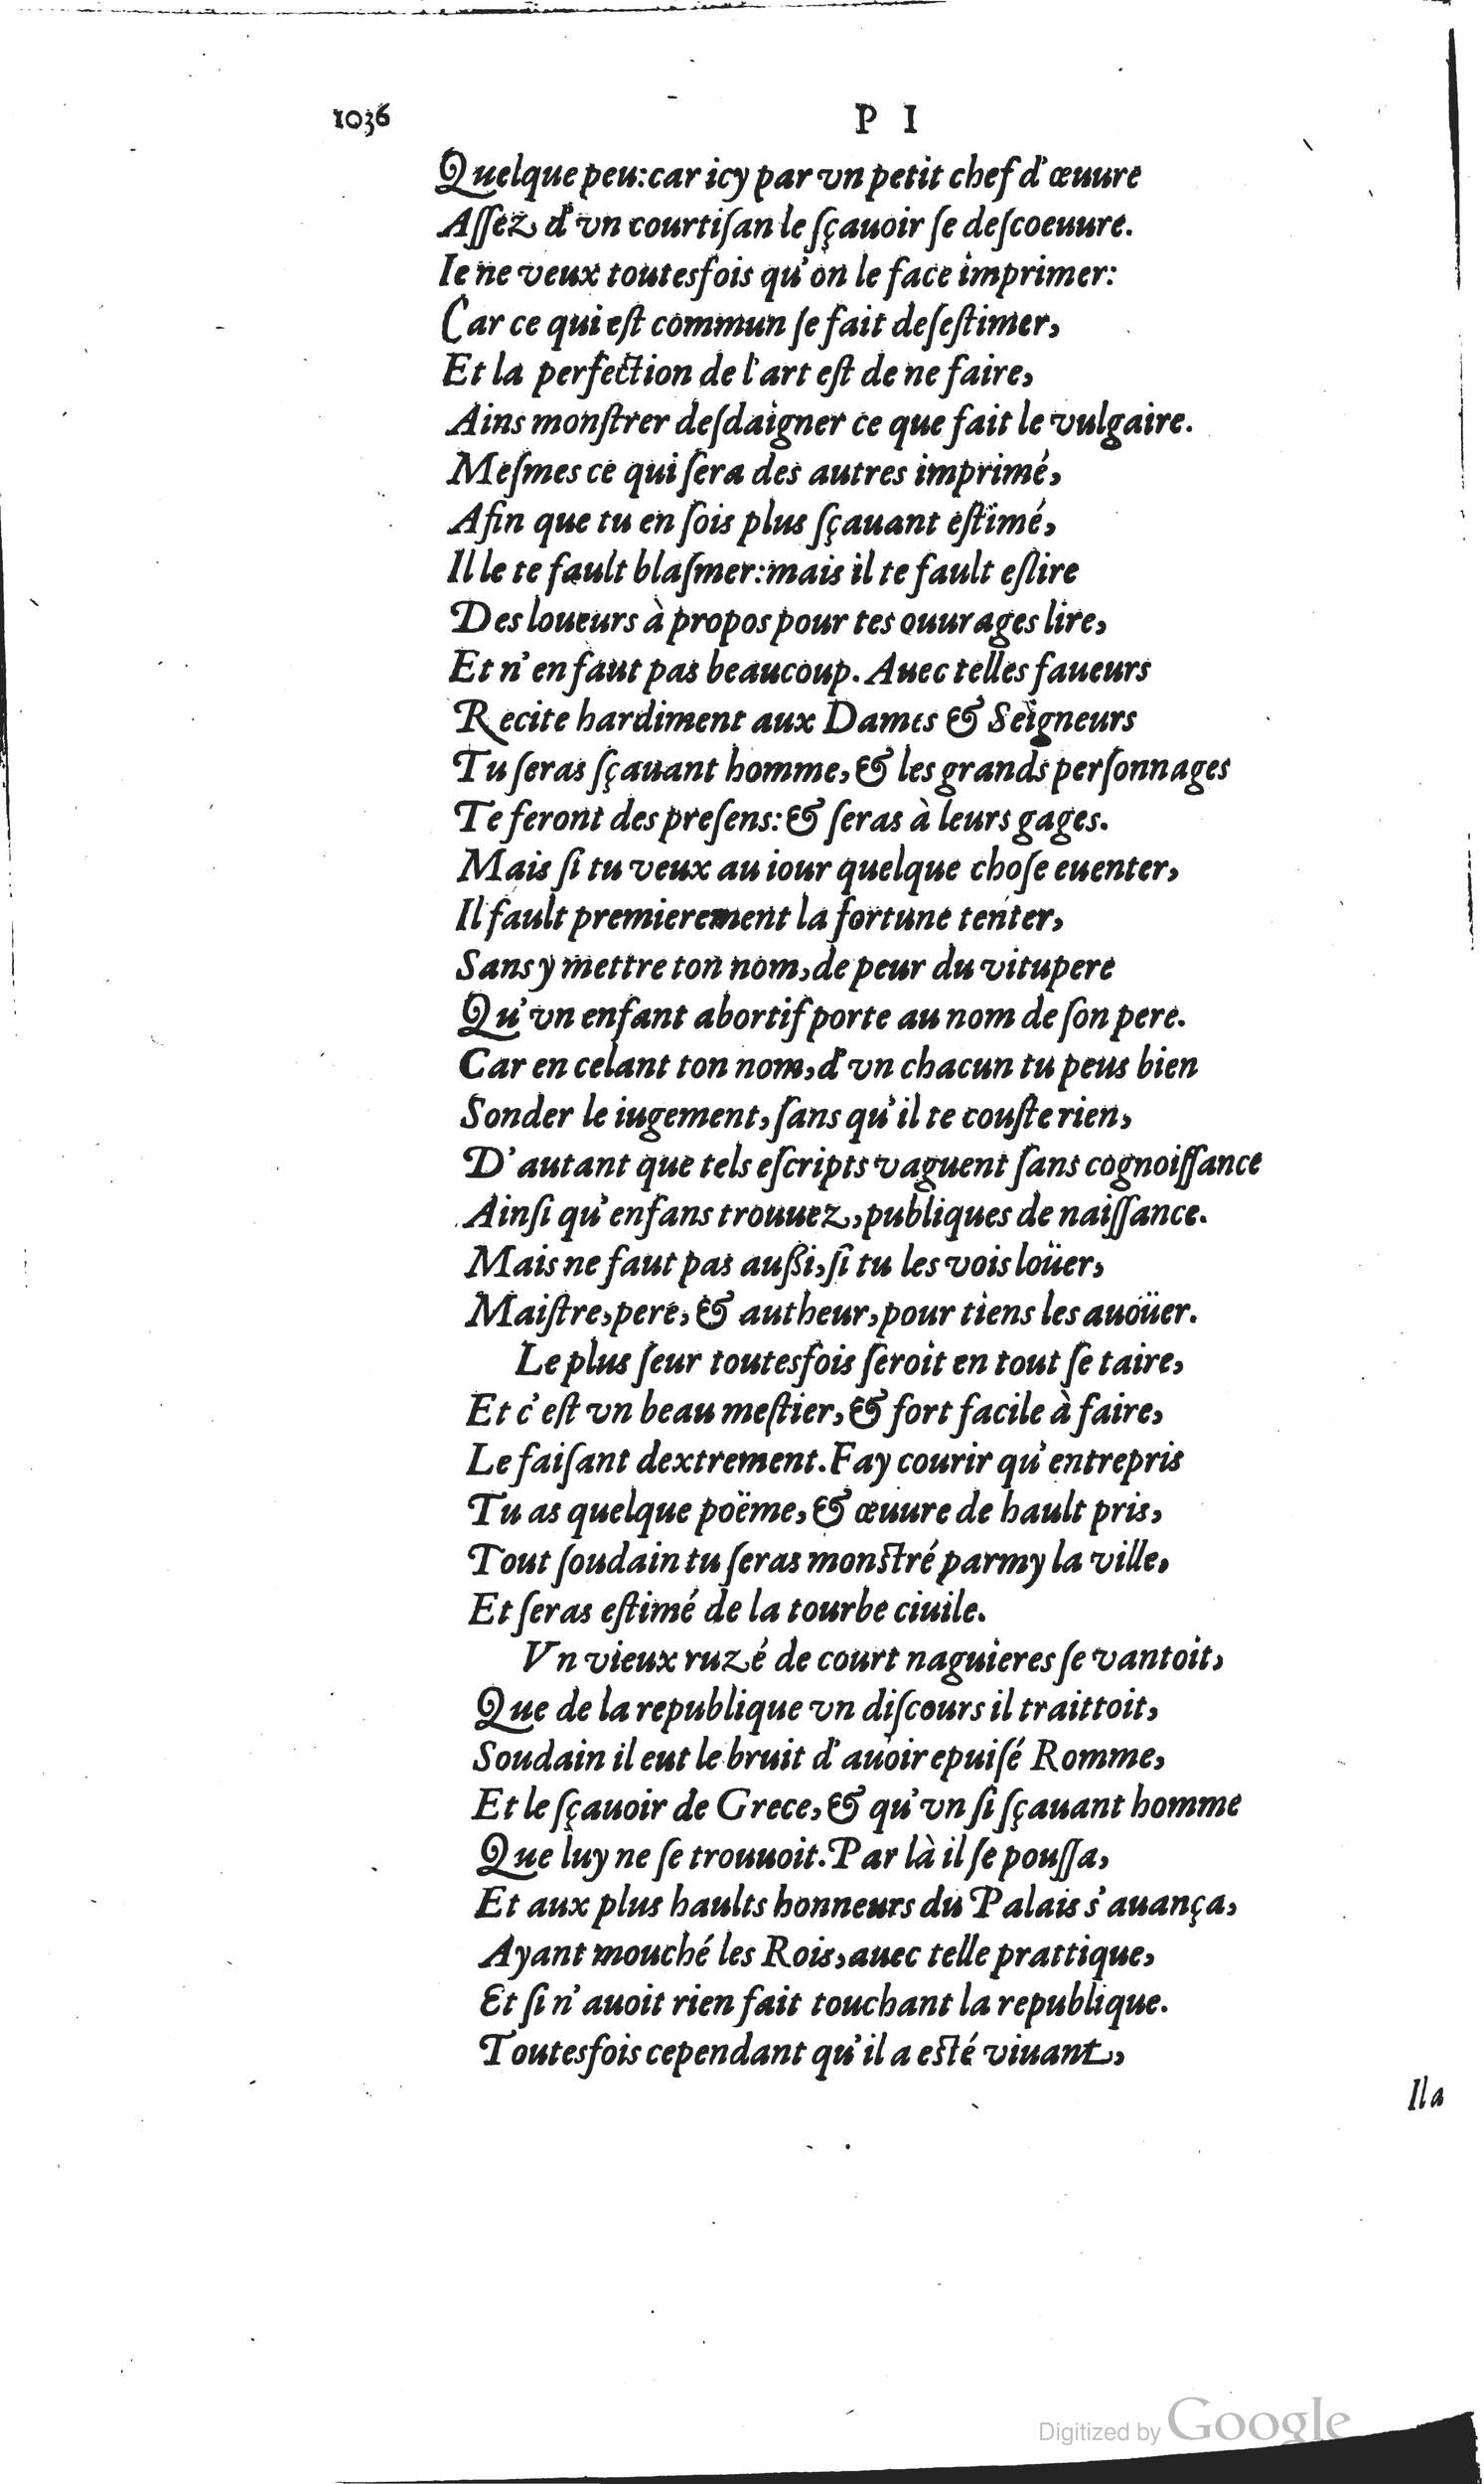 1036 P I
Quelque peu: car icy par vn petit chef d'œuure
Aſſez d'vn courtiſan le ſçauoir ſe deſcoeuure.
Ie ne veux toutesfois qu'on le face imprimer:
Car ce qui eſt commun ſe fait deſeſtimer,
Et la perfection de l'art eſt de ne faire,
Ains monſtrer deſdaigner ce que fait le vulgaire.
Meſmes ce qui ſera des autres imprimé,
Afin que tu en ſois plus ſçauant eſtimé,
Il le te fault blaſmer: mais il te fault eſlire
Des loueurs à propos pour tes ouurages lire,
Et n'en faut pas beaucoup. Auec telles faueurs
Recite hardiment aux Dames & Seigneurs
Tu ſeras ſçauant homme, & les grands perſonnages
Te feront des preſens: & ſeras à leurs gages.
Mais ſi tu veux au iour quelque choſe euenter,
Il fault premierement la fortune tenter,
Sans y mettre ton nom, de peur du vitupere
Qu'vn enfant abortif porte au nom de ſon pere.
Car en celant ton nom, d'vn chacun tu peus bien
Sonder le iugement, ſans qu'il te couſte rien,
D'autant que tels eſcripts vaguent ſans cognoiſſance
Ainſi qu'enfans trouuez, publiques de naiſſance.
Mais ne faut pas auſſi, ſi tu les vois loüer,
Maiſtre, pere, & autheur, pour tiens les auoüer.
Le plus ſeur toutesfois ſeroit en tout ſe taire,
Et c'eſt vn beau meſtier, & fort facile à faire,
Le faiſant dextrement. Fay courir qu'entrepris
Tu as quelque poëme, & œuure de hault pris,
Tout ſoudain tu ſeras monſtré parmy la ville,
Et ſeras eſtimé de la tourbe ciuile.
Vn vieux ruzé de court naguieres ſe vantoit,
Que de la republique vn diſcours il traittoit,
Soudain il eut le bruit d'auoir epuiſé Romme,
Et le ſçauoir de Grece, & qu'vn ſi ſçauant homme
Que luy ne ſe trouuoit. Par là il ſe pouſſa,
Et aux plus haults honneurs du Palais s'auança,
Ayant mouché les Rois, auec telle prattique,
Et ſi n'auoit rien fait touchant la republique.
Toutesfois cependant qu'il a eſté viuant,
Il a
Digitized by Google